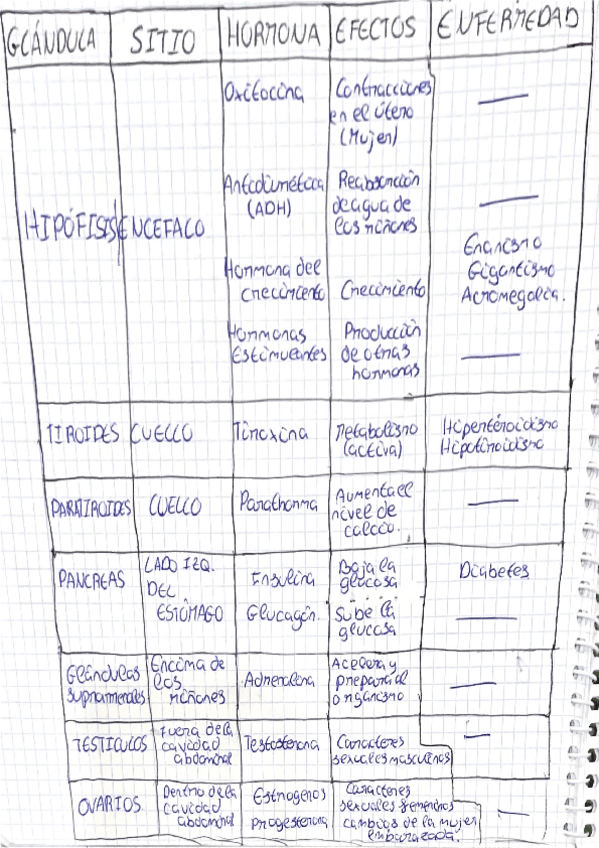 GLÁNDULA SITIO HORMONA EFECTOS ENFERMEDAD
HIPÓFISIS ENCEFALO
Oxitocina Contracciones
en el Útero
(Mujer)
Antidiurética Reabsorción
(ADH) de agua de
los riñones
Hormona del
crecimiento Crecimiento
Enanismo
Gigantismo
Acromegalia.
Hormonas Producción
Estimulantes de otras
hormonas
TIROIDES CUELLO Tiroxina Metabolismo
(activa)
Hipertiroidismo
Hipotiroidismo
PARATIROIDES CUELLO Parathorma Aumenta el
nivel de
calcio.
PANCREAS LADO IZQ.
DEL
ESTÓMAGO
Insulina Baja la
glucosa
Diabetes
Glucagón. Sube la
glucosa
Glándulas
suprarrenales
Encima de
los
riñones
Adrenalina Acelera y
prepara al
organismo
TESTICULOS Fuera de la
cavidad
abdominal
Testosterona Caracteres
sexuales masculinos
OVARIOS Dentro de la
cavidad
abdominal
Estrogenos
Progesterona
Caracteres
sexuales femeninos
cambios de la mujer
embarazada.